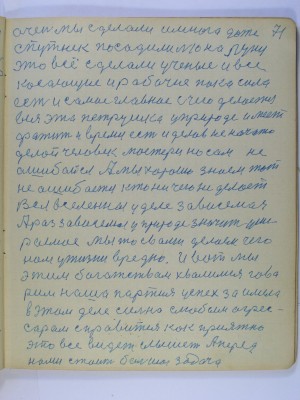 очем мы сделали и много даже 71
спутнек посадили мо на луну
это всё сделали ученые и все
косающие и рабочие пока сила
ест и самое главное с чего делоетьс
вия эта петрушка уприроде имеет
фатит и время ест и делов не начато
делой человек мостери но сам не
ошибайся А мы хорошо знаем тот
не ошибаетц кто ни чего не делоет
Вся вселенноя у деле зависемая
А раз зависемоя у природе значит уми-
раемое мы то своими делами чего
нам ужизни вредно. И вот мы
этим богатством хвалимся гова
рим наша партия успех за имела
в этом деле сильно с любым агрес-
сарам справится как приятно
это все видет слышет А перед
нами стоит большая задача